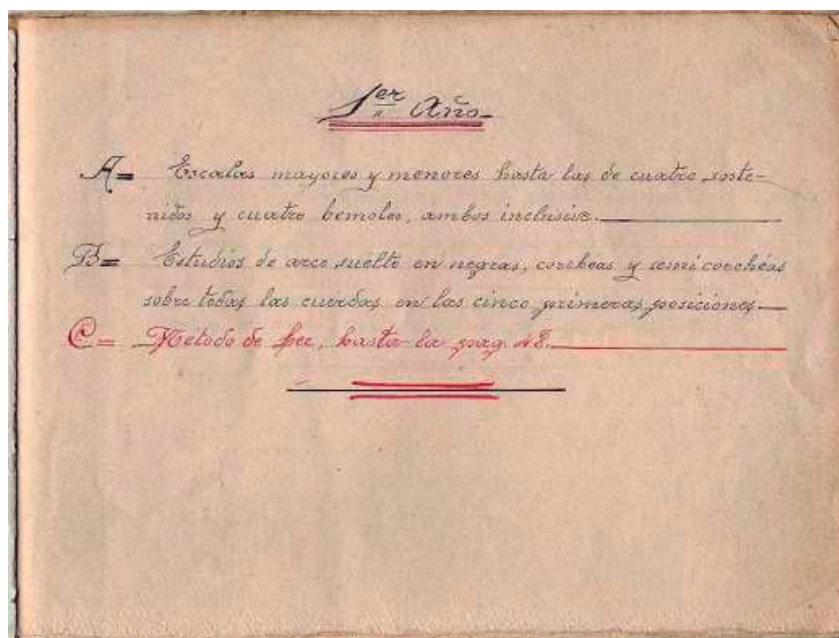 1er Año
A= Escalas mayores y menores hasta las de cuatro soste-
nidos y cuatro bemoles, ambos inclusive.
B= Estudios de arco suelto en negras, corcheas y semicorcheas
sobre todas las cuerdas en las cinco primeras posiciones
C= Metodo de hasta la pag 48.